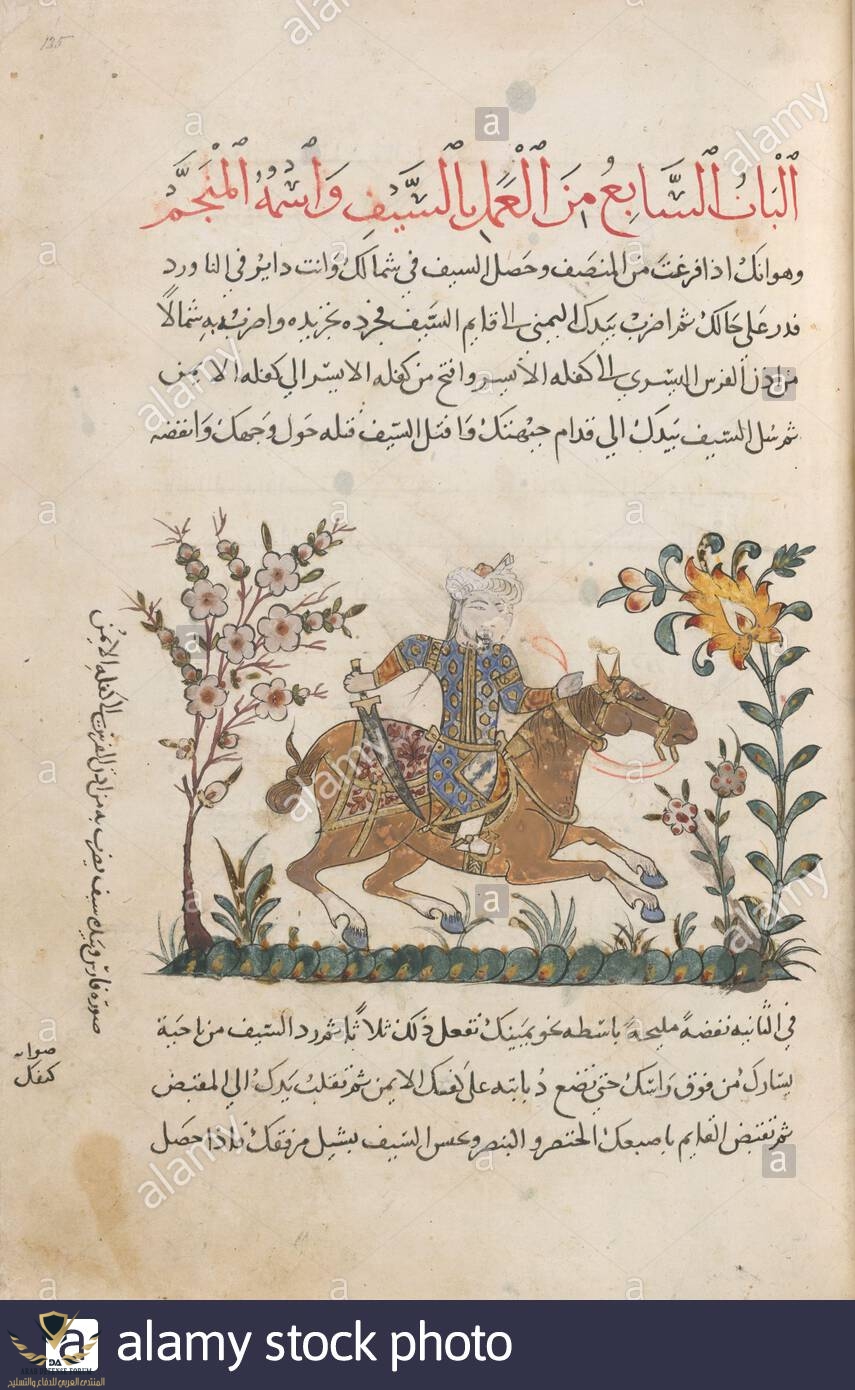 135
اَلْبَابُ السَّابِعُ مِنَ الْعَمَلِ بِالسَّيْفِ وَاسْمُهُ الْمُنَجَّمُ
وهو انك اذا فرغت من المنصف وحصل السيف في شمالك وانت داير في الناورد
فدر على حالك ثم اضرب بيدك اليمنى الى قايم السيف فجرده تجريده واضرب به شمالًا
من اذن الفرس اليسرى الى كفله الأيسر وافتح من كفله الايسر الى كفله الايمن
ثم سُل السيف بيدك الى قدام جبهتك وافتل السيف فتله حول وجهك وانفضه
صورة فارس وبيده سيف يضرب به من اذن الفرس الى كفله الايمن
في الثانيه نفضةً مليحةً باسطه نحو يمينك تفعل ذلك ثلاثًا ثم رد السيف من ناحية
صوابه
كتفك
يسارك من فوق راسك حتى تضع ذبابته على كفك الايمن ثم تقلب يدك الى المقبض
ثم تقبض القايم باصبعك الخنصر والبنصر السيف بشيل مرفقك فاذا حصل
alamy
a
alamy stock photo
DA
ARAB DEFENSE FORUM
المنتدى العربي للدفاع والتسليح